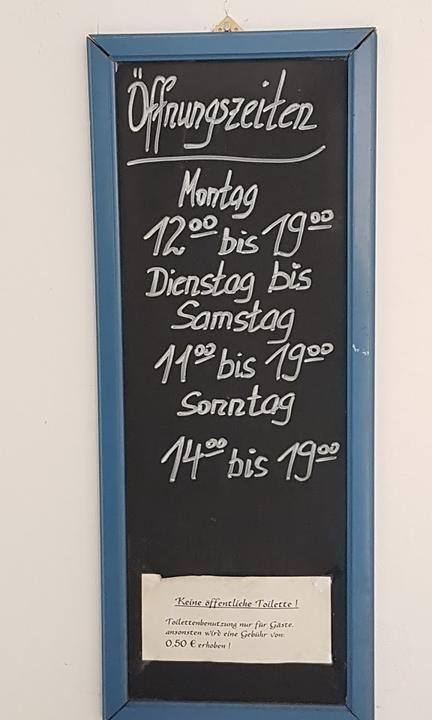 Öffnungszeiten
Montag
12⁰⁰ bis 19⁰⁰
Dienstag bis
Samstag
11⁰⁰ bis 19⁰⁰
Sonntag
14⁰⁰ bis 19⁰⁰
Keine öffentliche Toilette !
Toilettenbenutzung nur für Gäste,
ansonsten wird eine Gebühr von:
0,50 € erhoben !